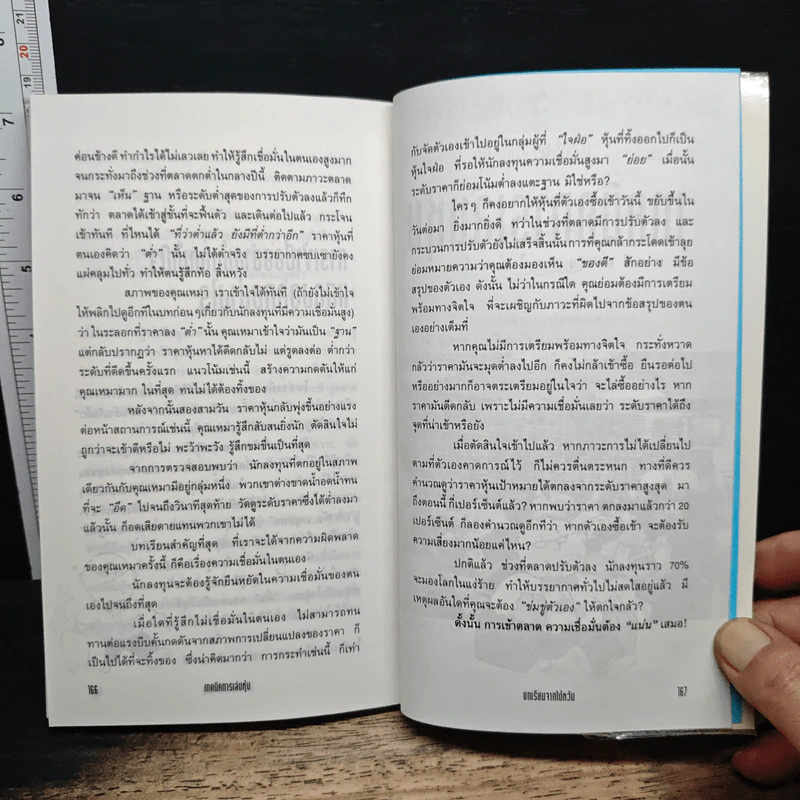 ค่อนข้างดี ทำกำไรได้ไม่เลวเลย ทำให้รู้สึกเชื่อมั่นในตนเองสูงมาก
จนกระทั่งมาถึงช่วงที่ตลาดตกต่ำในกลางปีนี้ ติดตามภาวะตลาด
มาจน "เห็น" ฐาน หรือระดับต่ำสุดของการปรับตัวลงแล้วก็ทึก
ทักว่า ตลาดได้เข้าสู่ขั้นที่จะฟื้นตัว และเดินต่อไปแล้ว กระโจน
เข้าทันที ที่ไหนได้ "ที่ว่าต่ำแล้ว ยังมีที่ต่ำกว่าอีก" ราคาหุ้นที่
ตนเองคิดว่า "ต่ำ" นั้น ไม่ได้ต่ำจริง บรรยากาศซบเซายังคง
แผ่คลุมไปทั่ว ทำให้ตนรู้สึกท้อ สิ้นหวัง
สภาพของคุณเหมา เราเข้าใจได้ทันที (ถ้ายังไม่เข้าใจ
ให้พลิกไปดูอีกทีในบทก่อนๆ เกี่ยวกับนักลงทุนที่มีความเชื่อมั่นสูง)
ว่า ในระลอกที่ราคาลง "ต่ำ" นั้น คุณเหมาเข้าใจว่ามันเป็น "ฐาน"
แต่กลับปรากฏว่า ราคาหุ้นหาได้ดีดกลับไม่ แต่รูดลงต่อ ต่ำกว่า
ระดับที่ดีดขึ้นครั้งแรก แนวโน้มเช่นนี้ สร้างความกดดันให้แก่
คุณเหมามาก ในที่สุด ทนไม่ได้ต้องทิ้งของ
หลังจากนั้นสองสามวัน ราคาหุ้นกลับพุ่งขึ้นอย่างแรง
ต่อหน้าสถานการณ์เช่นนี้ คุณเหมารู้สึกสับสนยิ่งนัก ตัดสินใจไม่
ถูกว่าจะเข้าดีหรือไม่ พะว้าพะวัง รู้สึกขมขื่นเป็นที่สุด
จากการตรวจสอบพบว่า นักลงทุนที่ตกอยู่ในสภาพ
เดียวกันกับคุณเหมามีอยู่กลุ่มหนึ่ง พวกเขาต่างขาดน้ำอดน้ำทน
ที่จะ "อึด" ไปจนถึงวินาทีสุดท้าย วัดดูระดับราคาซึ่งได้ต่ำลงมา
แล้วนั้น ก็อดเสียดายแทนพวกเขาไม่ได้
บทเรียนสำคัญที่สุด ที่เราจะได้จากความผิดพลาด
ของคุณเหมาครั้งนี้ ก็คือเรื่องความเชื่อมั่นในตนเอง
นักลงทุนจะต้องรู้จักยืนหยัดในความเชื่อมั่นของตน
เองไปจนถึงที่สุด
เมื่อใดที่รู้สึกไม่เชื่อมั่นในตนเอง ไม่สามารถทน
ทานต่อแรงบีบคั้นกดดันจากสภาพการเปลี่ยนแปลงของราคา ก็
เป็นไปได้ที่จะทิ้งของ ซึ่งน่าคิดมากว่า การกระทำเช่นนี้ ก็เท่า
166 เทคนิคการเล่นหุ้น
กับจัดตัวเองเข้าไปอยู่ในกลุ่มผู้ที่ "ใจฝ่อ" หุ้นที่ทิ้งออกไปก็เป็น
หุ้นใจฝ่อ ที่รอให้นักลงทุนความเชื่อมั่นสูงมา "ย่อย" เมื่อนั้น
ระดับราคาก็ย่อมโน้มต่ำลงแตะฐาน มิใช่หรือ?
ใครๆ ก็คงอยากให้หุ้นที่ตัวเองซื้อเข้าวันนี้ ขยับขึ้นใน
วันต่อมา ยิ่งมากยิ่งดี ทว่าในช่วงที่ตลาดมีการปรับตัวลง และ
กระบวนการปรับตัวยังไม่เสร็จสิ้นนั้น การที่คุณกล้ากระโดดเข้าลุย
ย่อมหมายความว่าคุณต้องมองเห็น "ของดี" สักอย่าง มีข้อ
สรุปของตัวเอง ดังนั้น ไม่ว่าในกรณีใด คุณย่อมต้องมีการเตรียม
พร้อมทางจิตใจ ที่จะเผชิญกับภาวะที่ผิดไปจากข้อสรุปของตน
เองอย่างเต็มที่
หากคุณไม่มีการเตรียมพร้อมทางจิตใจ กระทั่งหวาด
กลัวว่าราคามันจะมุดต่ำลงไปอีก ก็คงไม่กล้าเข้าซื้อ ยืนรอต่อไป
หรืออย่างมากก็อาจตระเตรียมอยู่ในใจว่า จะไล่ซื้ออย่างไร หาก
ราคามันดีดกลับ เพราะไม่มีความเชื่อมั่นเลยว่า ระดับราคาได้ถึง
จุดที่น่าเข้าหรือยัง
เมื่อตัดสินใจเข้าไปแล้ว หากภาวะการณ์ไม่ได้เปลี่ยนไป
ตามที่ตัวเองคาดการณ์ไว้ ก็ไม่ควรตื่นตระหนก ทางที่ดีควร
คำนวณดูว่าราคาหุ้นเป้าหมายได้ตกลงจากระดับราคาสูงสุด มา
ถึงตอนนี้ กี่เปอร์เซ็นต์แล้ว? หากพบว่าราคา ตกลงมาแล้วกว่า 20
เปอร์เซ็นต์ ก็ลองคำนวณดูอีกทีว่า หากตัวเองซื้อเข้า จะต้องรับ
ความเสี่ยงมากน้อยแค่ไหน?
ปกติแล้ว ช่วงที่ตลาดปรับตัวลง นักลงทุนราว 70%
จะมองโลกในแง่ร้าย ทำให้บรรยากาศทั่วไปไม่สดใสอยู่แล้ว มี
เหตุผลอันใดที่คุณจะต้อง "ข่มขู่ตัวเอง" ให้ตกใจกลัว?
ดั้งนั้น การเข้าตลาด ความเชื่อมั่นต้อง "แน่น" เสมอ!
บทเรียนจากไต้หวัน 167
19
20
21
7
8